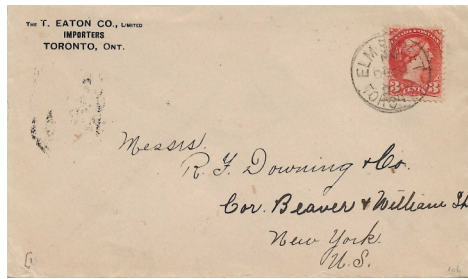 THE T. EATON CO., LIMITED
IMPORTERS
TORONTO, ONT.
ELM S
TORO
3 CENTS 3
Messrs.
R. F. Downing & Co.
Cor. Beaver & William St
New York.
U.S.